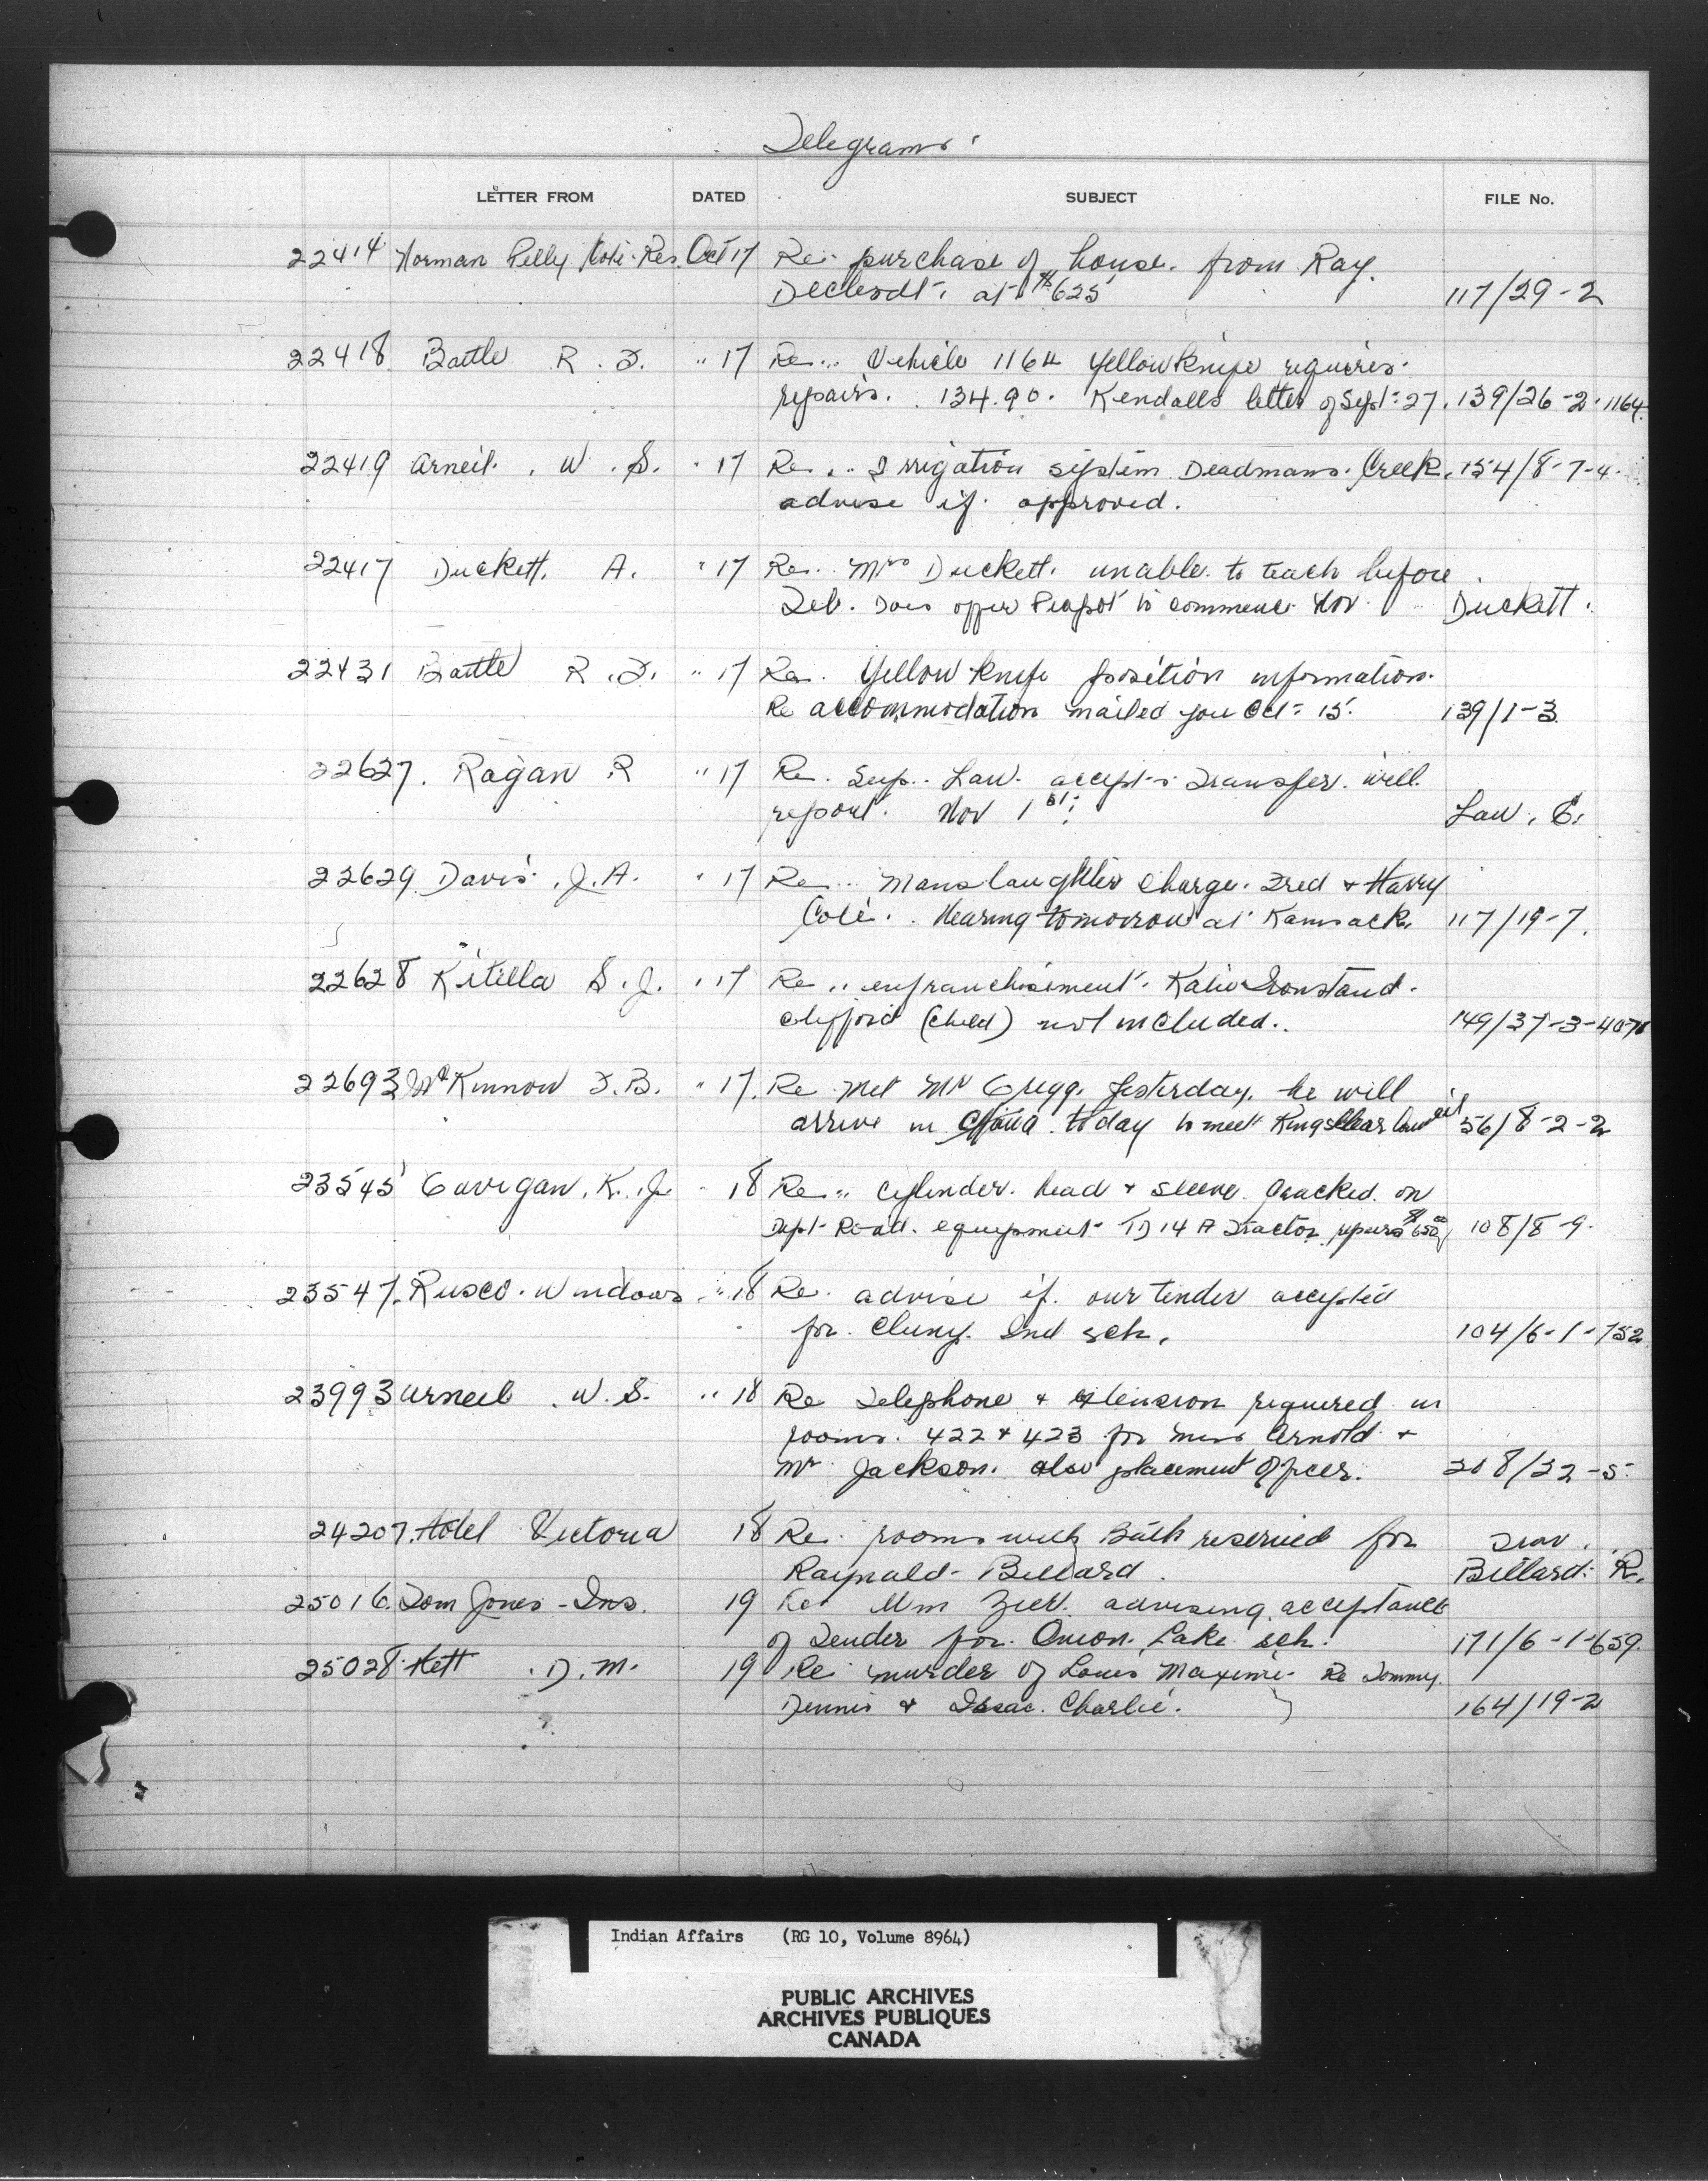 Telegrams
LETTER FROM DATED SUBJECT FILE No.
22414 Norman Pelly Kote Res. Oct 17 Re. purchase of house. from Ray.
at $625 117/29-2
22418 Battle R. D. " 17 Re.. Vehicle 1164 Yellowknife requires.
repairs. 134.90. Kendalls letter of Sept. 27. 139/26-2-1164
22419 Arneil. W. S. " 17 Re... Irrigation system Deadmans. Creek. 154/8-7-4.
advise if approved.
22417 Duckett. A. " 17 Re.. Mrs Duckett. unable to teach before
Feb. Does offer to commence Nov. Duckett.
22431 Battle R. D. " 17 Re. Yellowknife position information.
Re accommodation mailed you Oct 15. 139/1-3
22627. Ragan R " 17 Re. Sup.. Law. accepts Transfer. will.
report. Nov 1st. Law, E.
22629 Davis. J. A. " 17 Re... Manslaughter Charge. Fred & Harry
Cote. Hearing tomorrow at Kamsack. 117/19-7.
22628 Kitella S. J. " 17 Re.. enfranchisement. Katie Ironstand.
Clifford (child) not included.. 149/37-3-407
22693 McKinnon F. B. " 17. Re Met Mr Gregg. yesterday. he will
arrive in Ottawa today to meet Kingsclear Council 56/8-2-2
23545 Gavigan. K. J. " 18 Re.. cylinder. head & sleeve. cracked. on
Dept. Road. equipment TD 14 A Tractor repairs $650 00 108/8-9.
23547. Rusco. Windows " 18 Re. advise if. our tender accepted
for. Cluny. Ind sch. 104/6-1-752
23993 Arneil. W. S. " 18 Re Telephone & extension required in
rooms. 422 & 423 for Miss Arnold &
Mr Jackson. also placement officer. 208/32-5.
24207. Hotel Victoria 18 Re. rooms with Bath reserved for Trav.
Raynald Billard. Billard. R.
25016. Tom Jones - Ins. 19 Re Wm advising acceptance
of Tender for. Onion. Lake sch. 171/6-1-659.
25028. Hett D. M. 19 Re murder of Louis Maxime. Re Tommy.
Dennis & Isaac. Charlie. 164/19-2
Indian Affairs (RG 10, Volume 8964)
PUBLIC ARCHIVES
ARCHIVES PUBLIQUES
CANADA